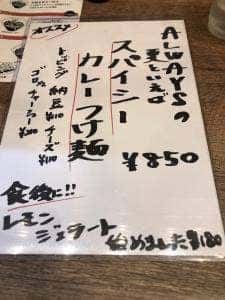 ALWAYSの
夏といえば
スパイシー
カレーつけ麺
¥850
オススメ
トッピング
納豆 ¥110
チーズ ¥110
ゴロチャーシュー
食後に!!
レモン
ジェラート
始めました¥180